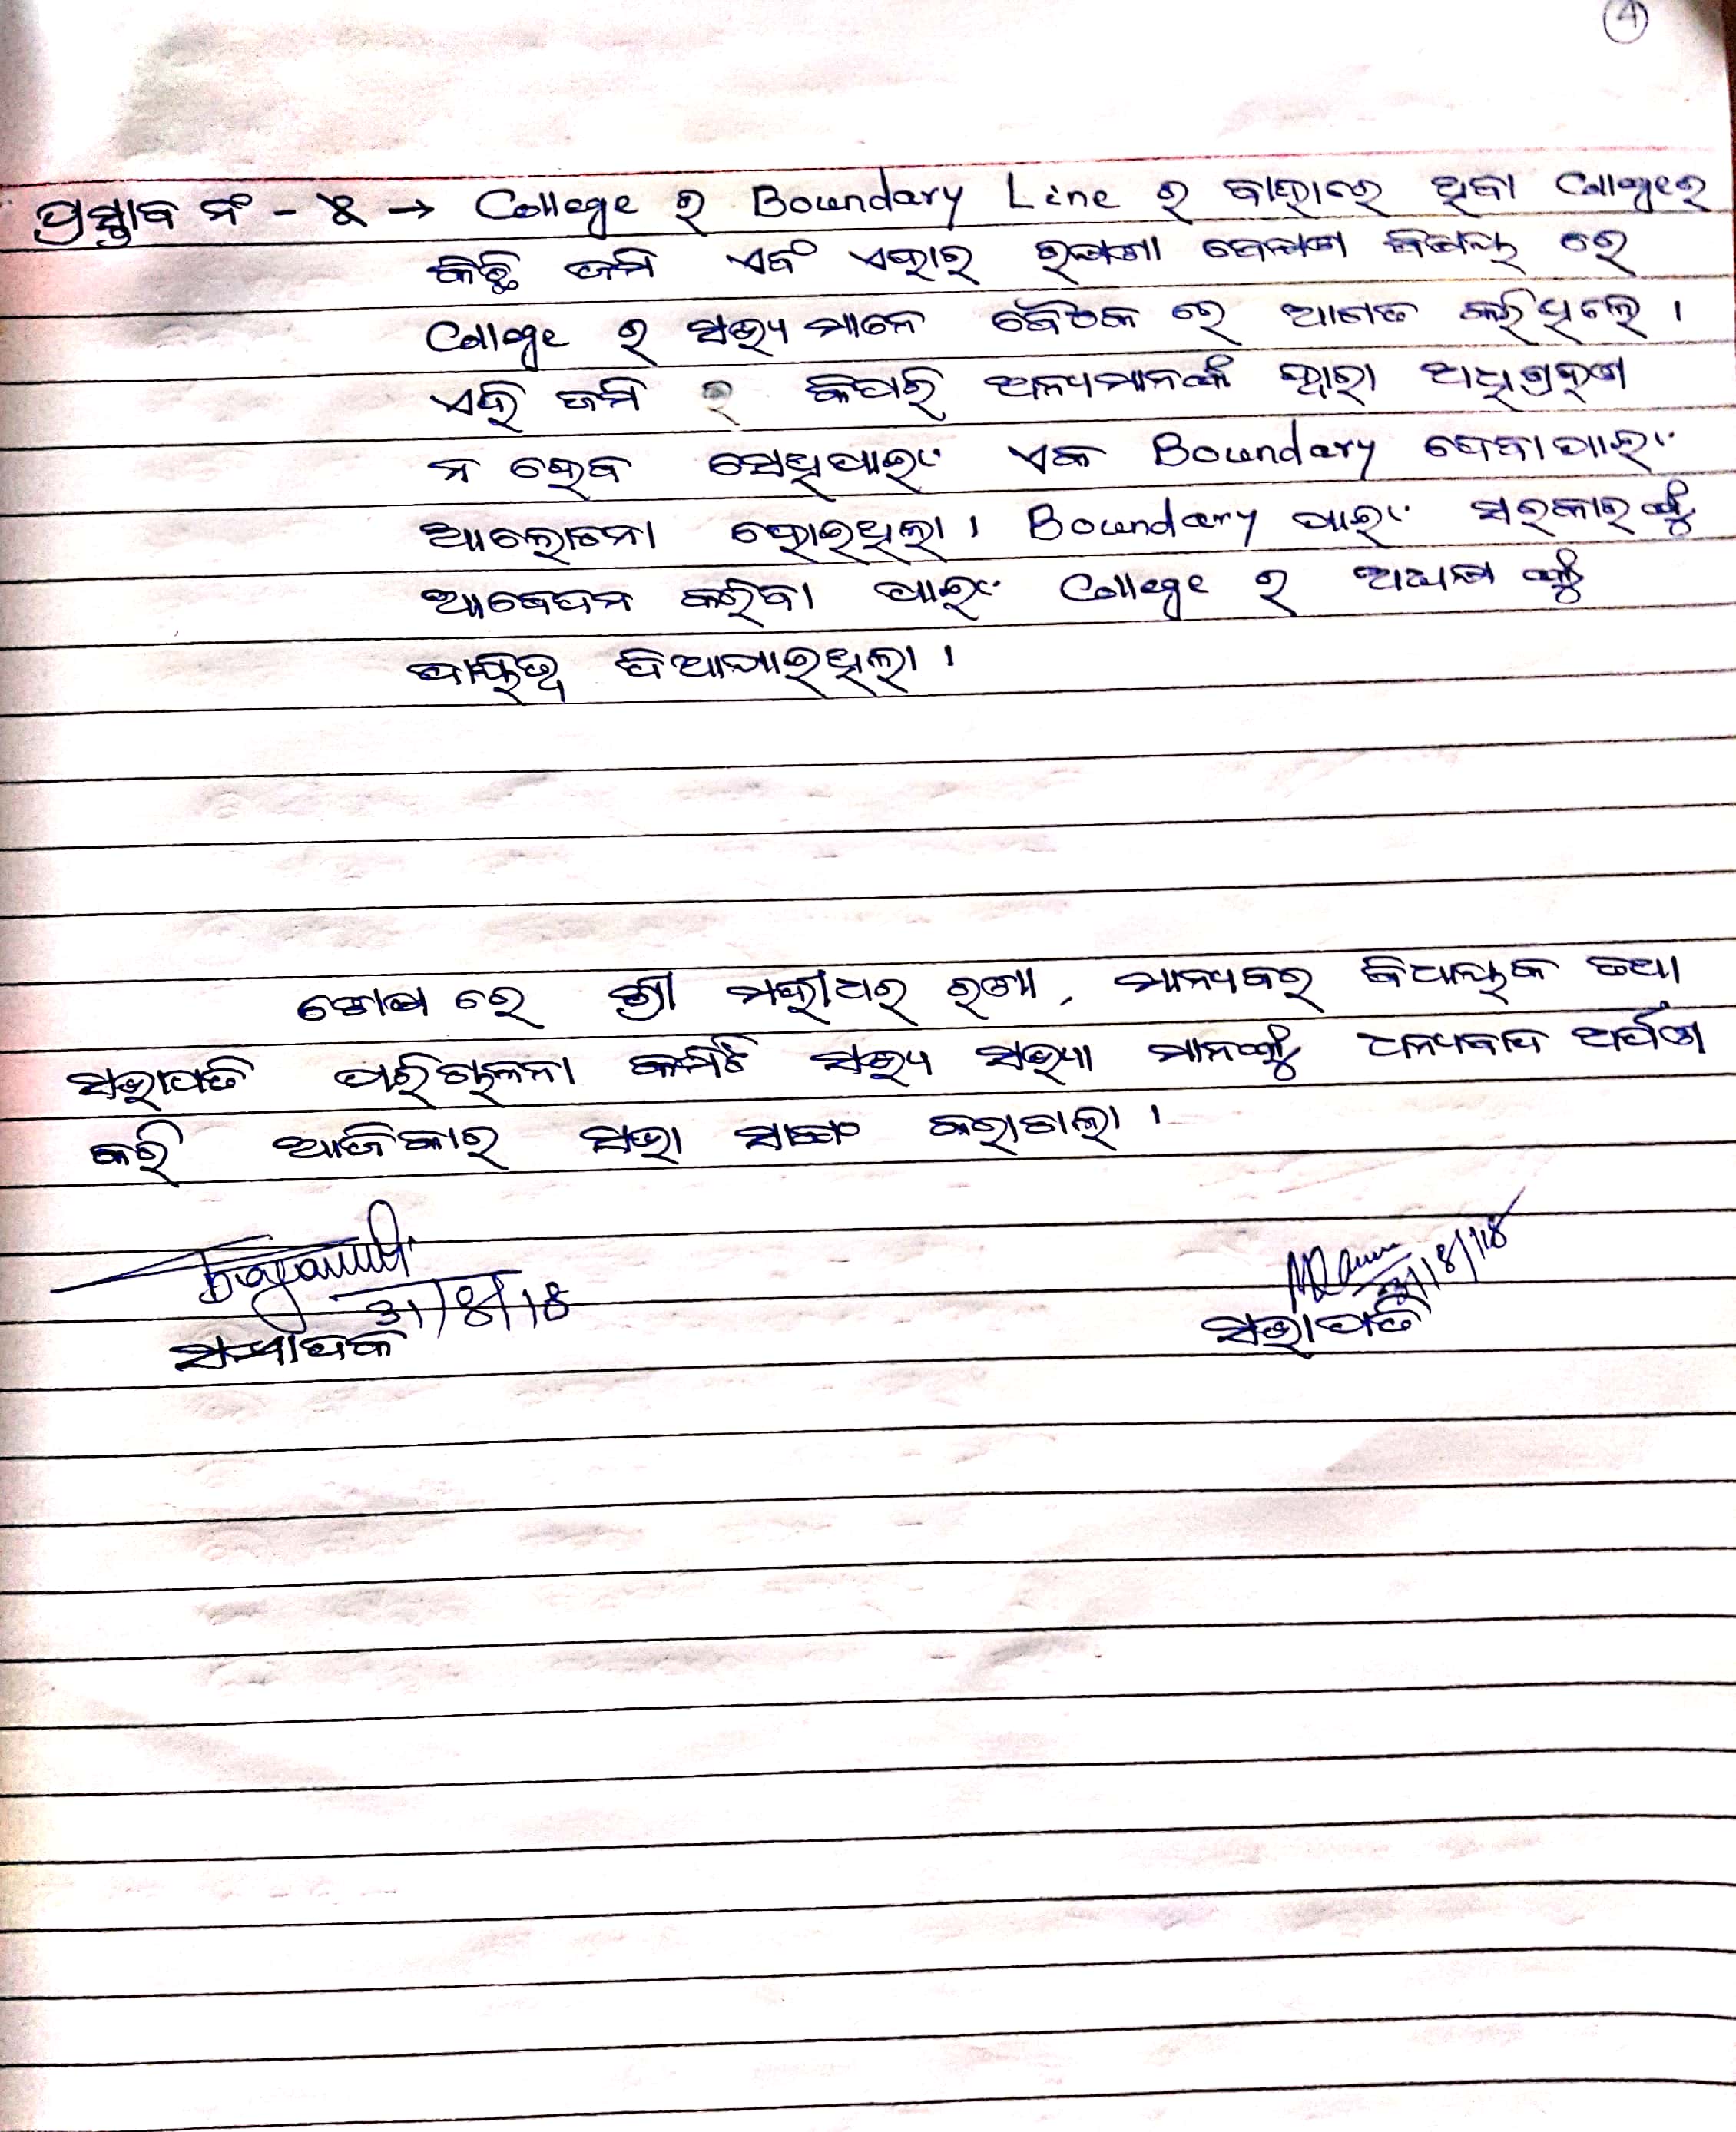 4
ପ୍ରସ୍ତାବ ନଂ - ୪ → College ର Boundary Line ର ବାହାରେ ଥିବା Collegeର
କିଛି ଜମି ଏବଂ ଏହାର ରକ୍ଷଣା ବେକ୍ଷଣ ବିଷୟ ରେ
College ର ସଭ୍ୟ ମାନେ ବୈଠକ ରେ ଆଗତ କରିଥିଲେ ।
ଏହି ଜମି ର କିପରି ଅନ୍ୟମାନଙ୍କ ଦ୍ୱାରା ଅଧିଗ୍ରହଣ
ନ ହେବ ସେଥିପାଇଂ ଏକ Boundary ଦେବାପାଇଂ
ଆଲୋଚନା ହୋଇଥିଲା । Boundary ପାଇଂ ସରକାର ଙ୍କୁ
ଆବେଦନ କରିବା ପାଇଂ College ର ଅଧ୍ୟକ୍ଷ ଙ୍କୁ
ଦାୟିତ୍ୱ ଦିଆଯାଇଥିଲା ।
ଶେଷ ରେ ଶ୍ରୀ ମହୀଧର ରଣା, ମାନ୍ୟବର ବିଧାୟକ ତଥା
ସଭାପତି ପରିଚାଳନା କମିଟି ସଭ୍ୟ ସଭ୍ୟା ମାନଙ୍କୁ ଧନ୍ୟବାଦ ଅର୍ପଣ
କରି ଆଜିକାର ସଭା ସାଙ୍ଗ କରାଗଲା ।
31/8/18 31/8/18
ସମ୍ପାଦକ ସଭାପତି